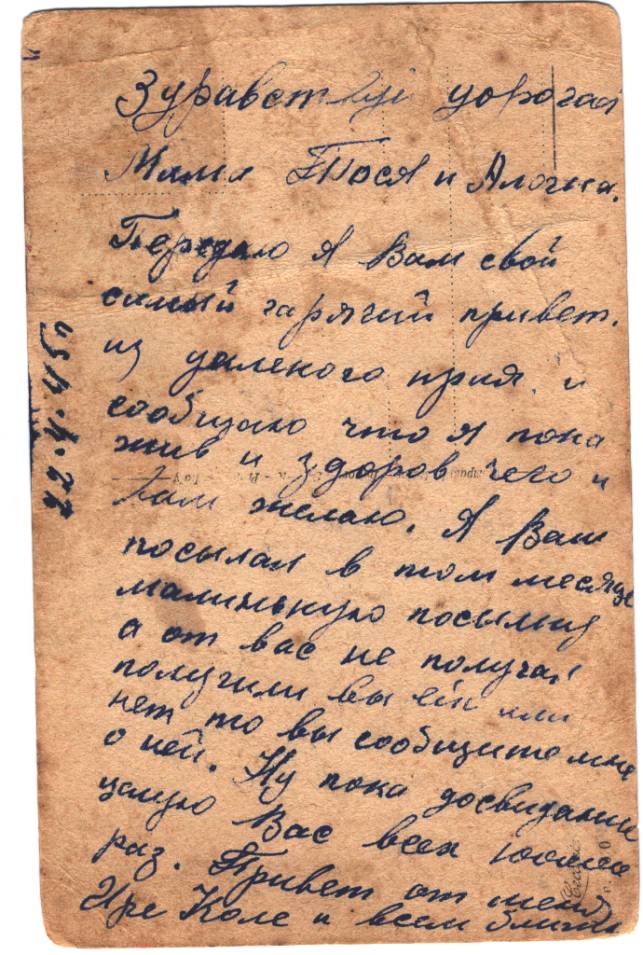 Здравствуй дорогая
Мама Тося и Алочка.
Передаю я Вам свой
самый гарячий привет.
из далекого края и
сообщаю что я пока
жив и здоров чего и
вам желаю. Я Вам
посылал в том месяце
малинькую посылку
а от вас не получал
получили вы ей или
нет то вы сообщите мне
о ней. Ну пока досвидание
целую Вас всех
раз. Привет от меня
Ире Коле и всем близким
22.4.45г